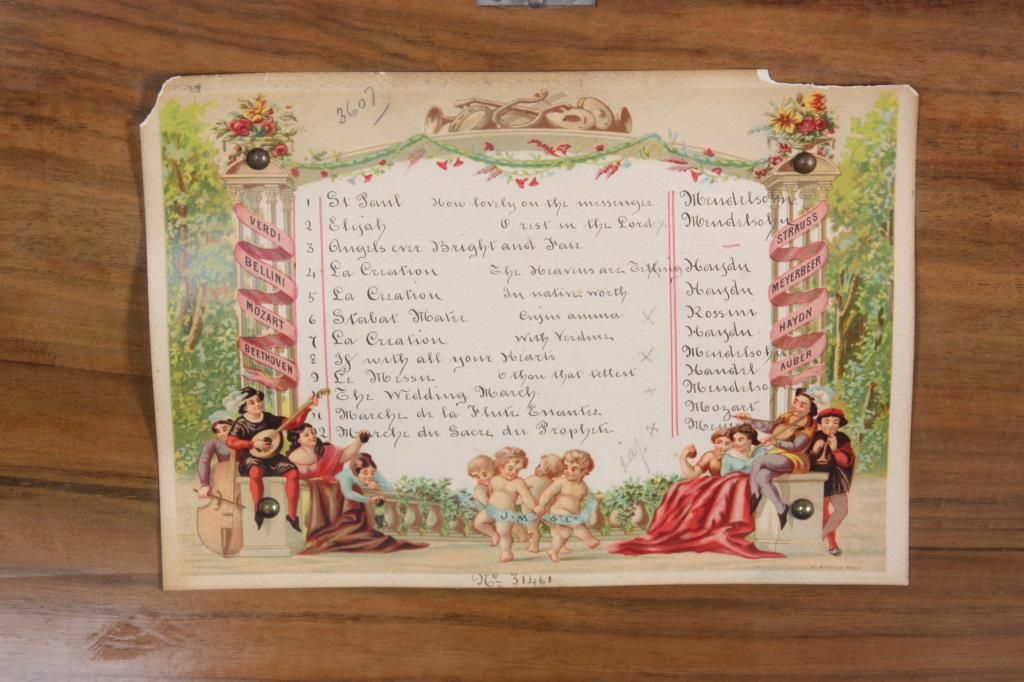 3607
VERDI
BELLINI
MOZART
BEETHOVEN
1 St Paul How lovely on the messenger Mendelsohn
2 Elijah O rest in the Lord x Mendelsohn
3 Angels ever Bright and Fair —
4 La Creation The Heavens are Telling Haydn
5 La Creation In native worth Haydn
6 Stabat Mater Cujus amma x Rossini
7 La Creation With Verdure Haydn
8 If with all your Hearts x Mendelsohn
9 Le Messie O thou that tellest Handel
10 The Wedding March + Mendelso
11 Marche de la Flute Enantee Mozart
12 Marche du Sacre du Prophete x
STRAUSS
MEYERBEER
HAYDN
AUBER
J.M & C
No 31461